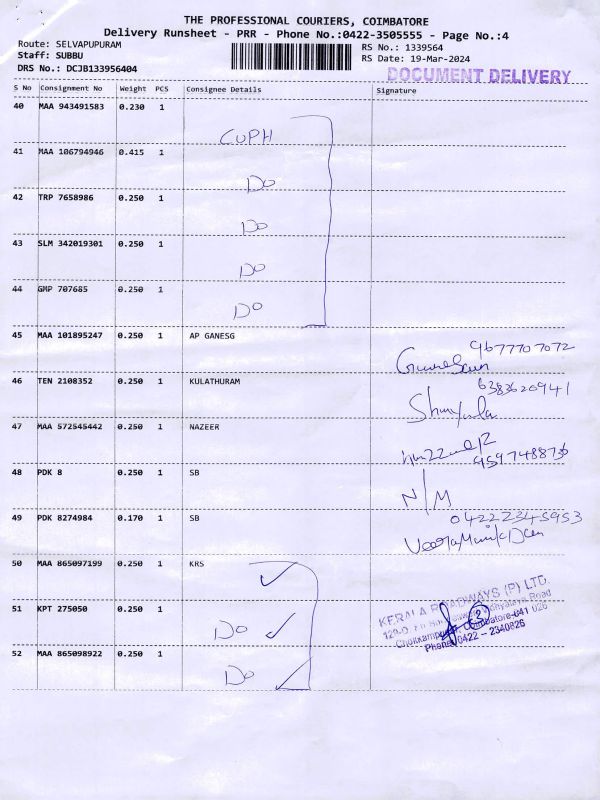 THE PROFESSIONAL COURIERS, COIMBATORE
Delivery Runsheet - PRR - Phone No.:0422-3505555 - Page No.:4
Route: SELVAPUPURAM
Staff: SUBBU
DRS No.: DCJB133956404
RS No.: 1339564
RS Date: 19-Mar-2024
DOCUMENT DELIVERY
S No Consignment No Weight PCS Consignee Details Signature
40 MAA 943491583 0.230 1
CUPH
41 MAA 106794946 0.415 1
Do
42 TRP 7658986 0.250 1
Do
43 SLM 342019301 0.250 1
Do
44 GMP 707685 0.250 1
Do
45 MAA 101895247 0.250 1 AP GANESG
9677707072
46 TEN 2108352 0.250 1 KULATHURAM
6383620941
47 MAA 572545442 0.250 1 NAZEER
9597488736
48 PDK 8 0.250 1 SB
N/M
49 PDK 8274984 0.170 1 SB
04222345953
50 MAA 865097199 0.250 1 KRS
51 KPT 275050 0.250 1
Do
KERALA ROADWAYS (P) LTD.
Coimbatore-641 026
Phone: 0422 - 2340826
52 MAA 865098922 0.250 1
Do